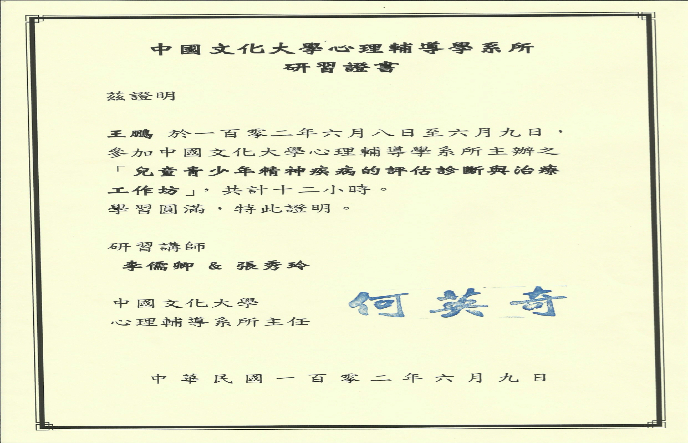 中國文化大學心理輔導學系所
研習證書
茲證明
王鵬 於一百零二年六月八日至六月九日，
參加中國文化大學心理輔導學系所主辦之
「兒童青少年精神疾病的評估診斷與治療
工作坊」，共計十二小時。
學習圓滿，特此證明。
研習講師
李儒卿 & 張秀玲
中國文化大學
心理輔導系所主任
何英奇
中華民國一百零二年六月九日